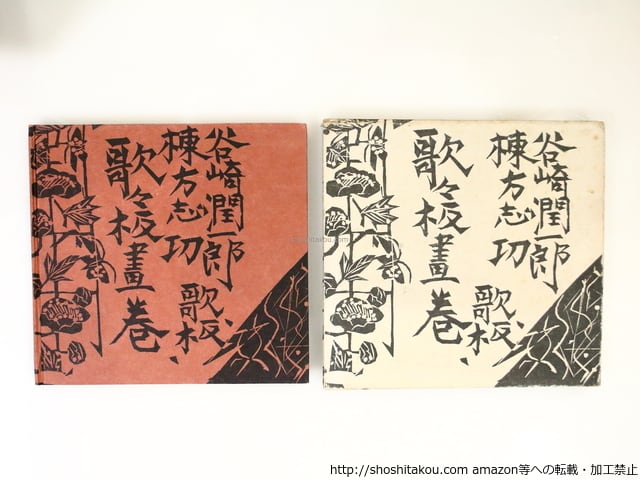 谷崎潤一郎 歌、
棟方志功 板、
歌々板畫巻
谷崎潤一郎 歌、
棟方志功 板、
歌々板畫巻
shoshitakou.com
http://shoshitakou.com amazon等への転載・加工禁止